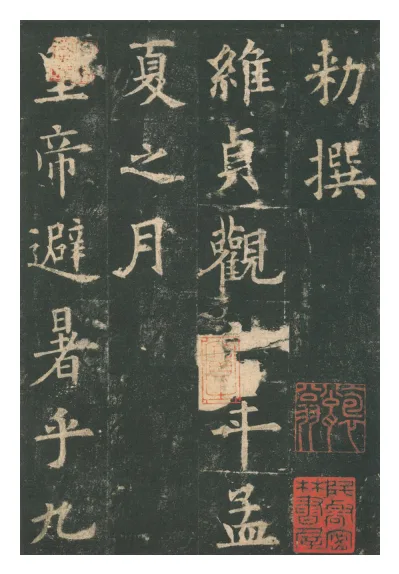 勅撰
維貞觀年孟
夏之月
皇帝避暑乎九